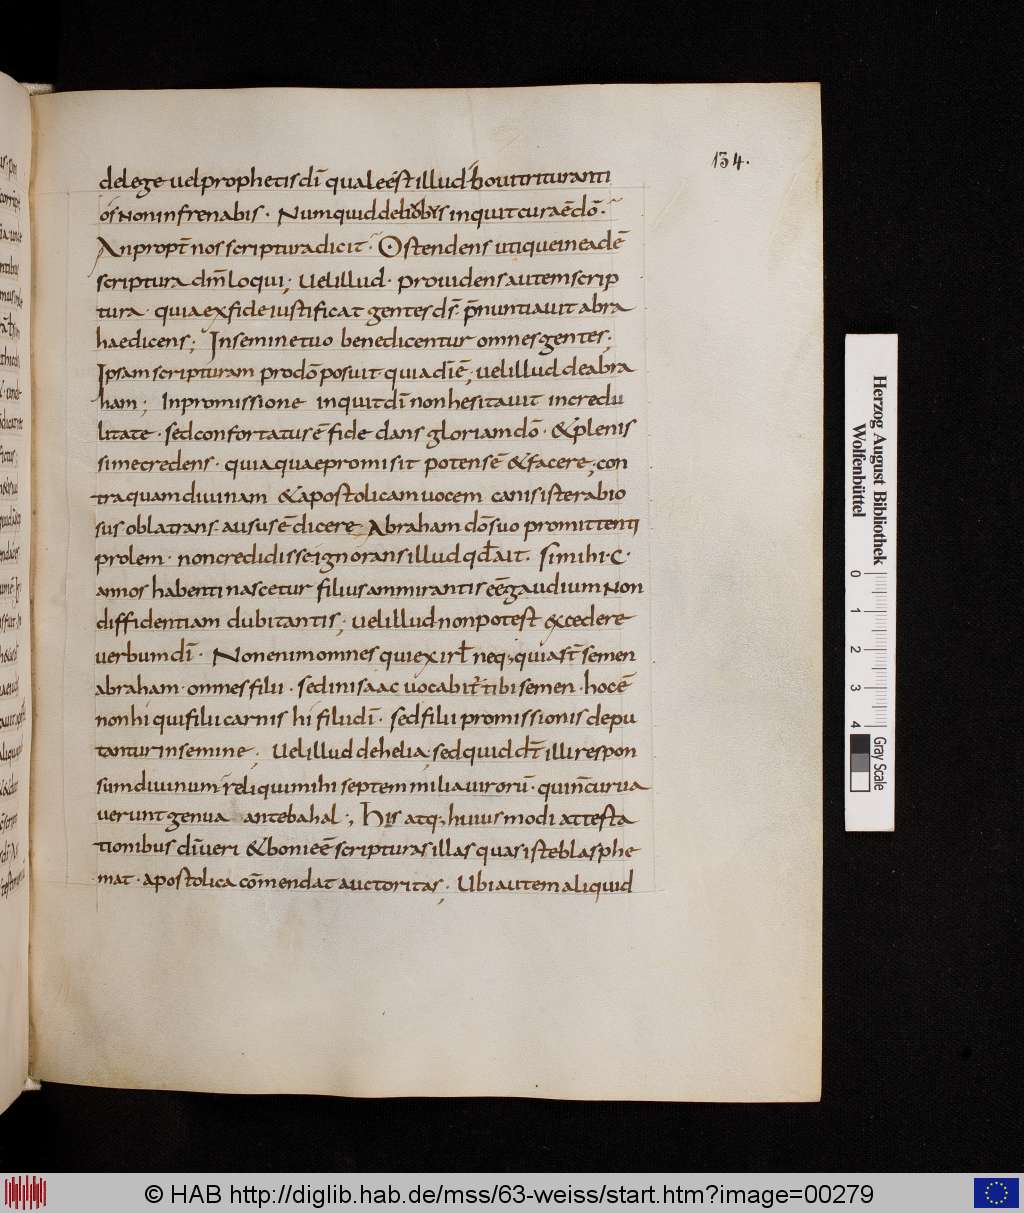 134.
delege uelprophetis dī qualeest illud boui trituranti
os noninfrenabis · Numquid debobus inquit cura ē dō ·
An propt̄ nos scriptura dicit · Ostendens utique ineadē
scriptura dm̄ loqui ; uel illud · prouidens autem scrip
tura · quia exfide iustificat gentes ds̄ · p̄nuntiauit abra
hae dicens ; In semine tuo benedicentur omnes gentes ;
Ipsam scripturam prodō posuit quia dī ē ; uel illud de abra
ham ; Inpromissione inquit dī non hesitauit incredu
litate · sed confortatus ē fide dans gloriam dō · & plenis
sime credens · quia quaepromisit potens ē & facere ; con
tra quam diuinam & apostolicam uocem canis iste rabio
sus oblatrans ausus ē dicere Abraham dō suo promittenti
prolem · non credidisse ignorans illud qđ ait · si mihi · C ·
annos habenti nascetur filius ammirantis eē gaudium Non
diffidentiam dubitantis ; uel illud non potest excedere
uerbum dī · Non enim omnes qui ex irł neq; quia st̄ semen
abraham · omnes filii · sed inisaac uocabit̄ tibi semen · hoc ē
non hi qui filii carnis hi filii dī · sed filii promissionis depu
tantur in semine ; Uel illud de helia ; sed quid dt̄ illi respon
sum diuinum reliqui mihi septem milia uirorū · qui n̄ curua
uerunt genua ante bahal ; His atq; huius modi attesta
tionibus dī ueri & boni eē scripturas illas quas iste blasphe
mat · apostolica cōmendat auctoritas ; Ubi autem aliquid
Herzog August Bibliothek
Wolfenbüttel
0 1 2 3 4
Gray Scale
© HAB http://diglib.hab.de/mss/63-weiss/start.htm?image=00279